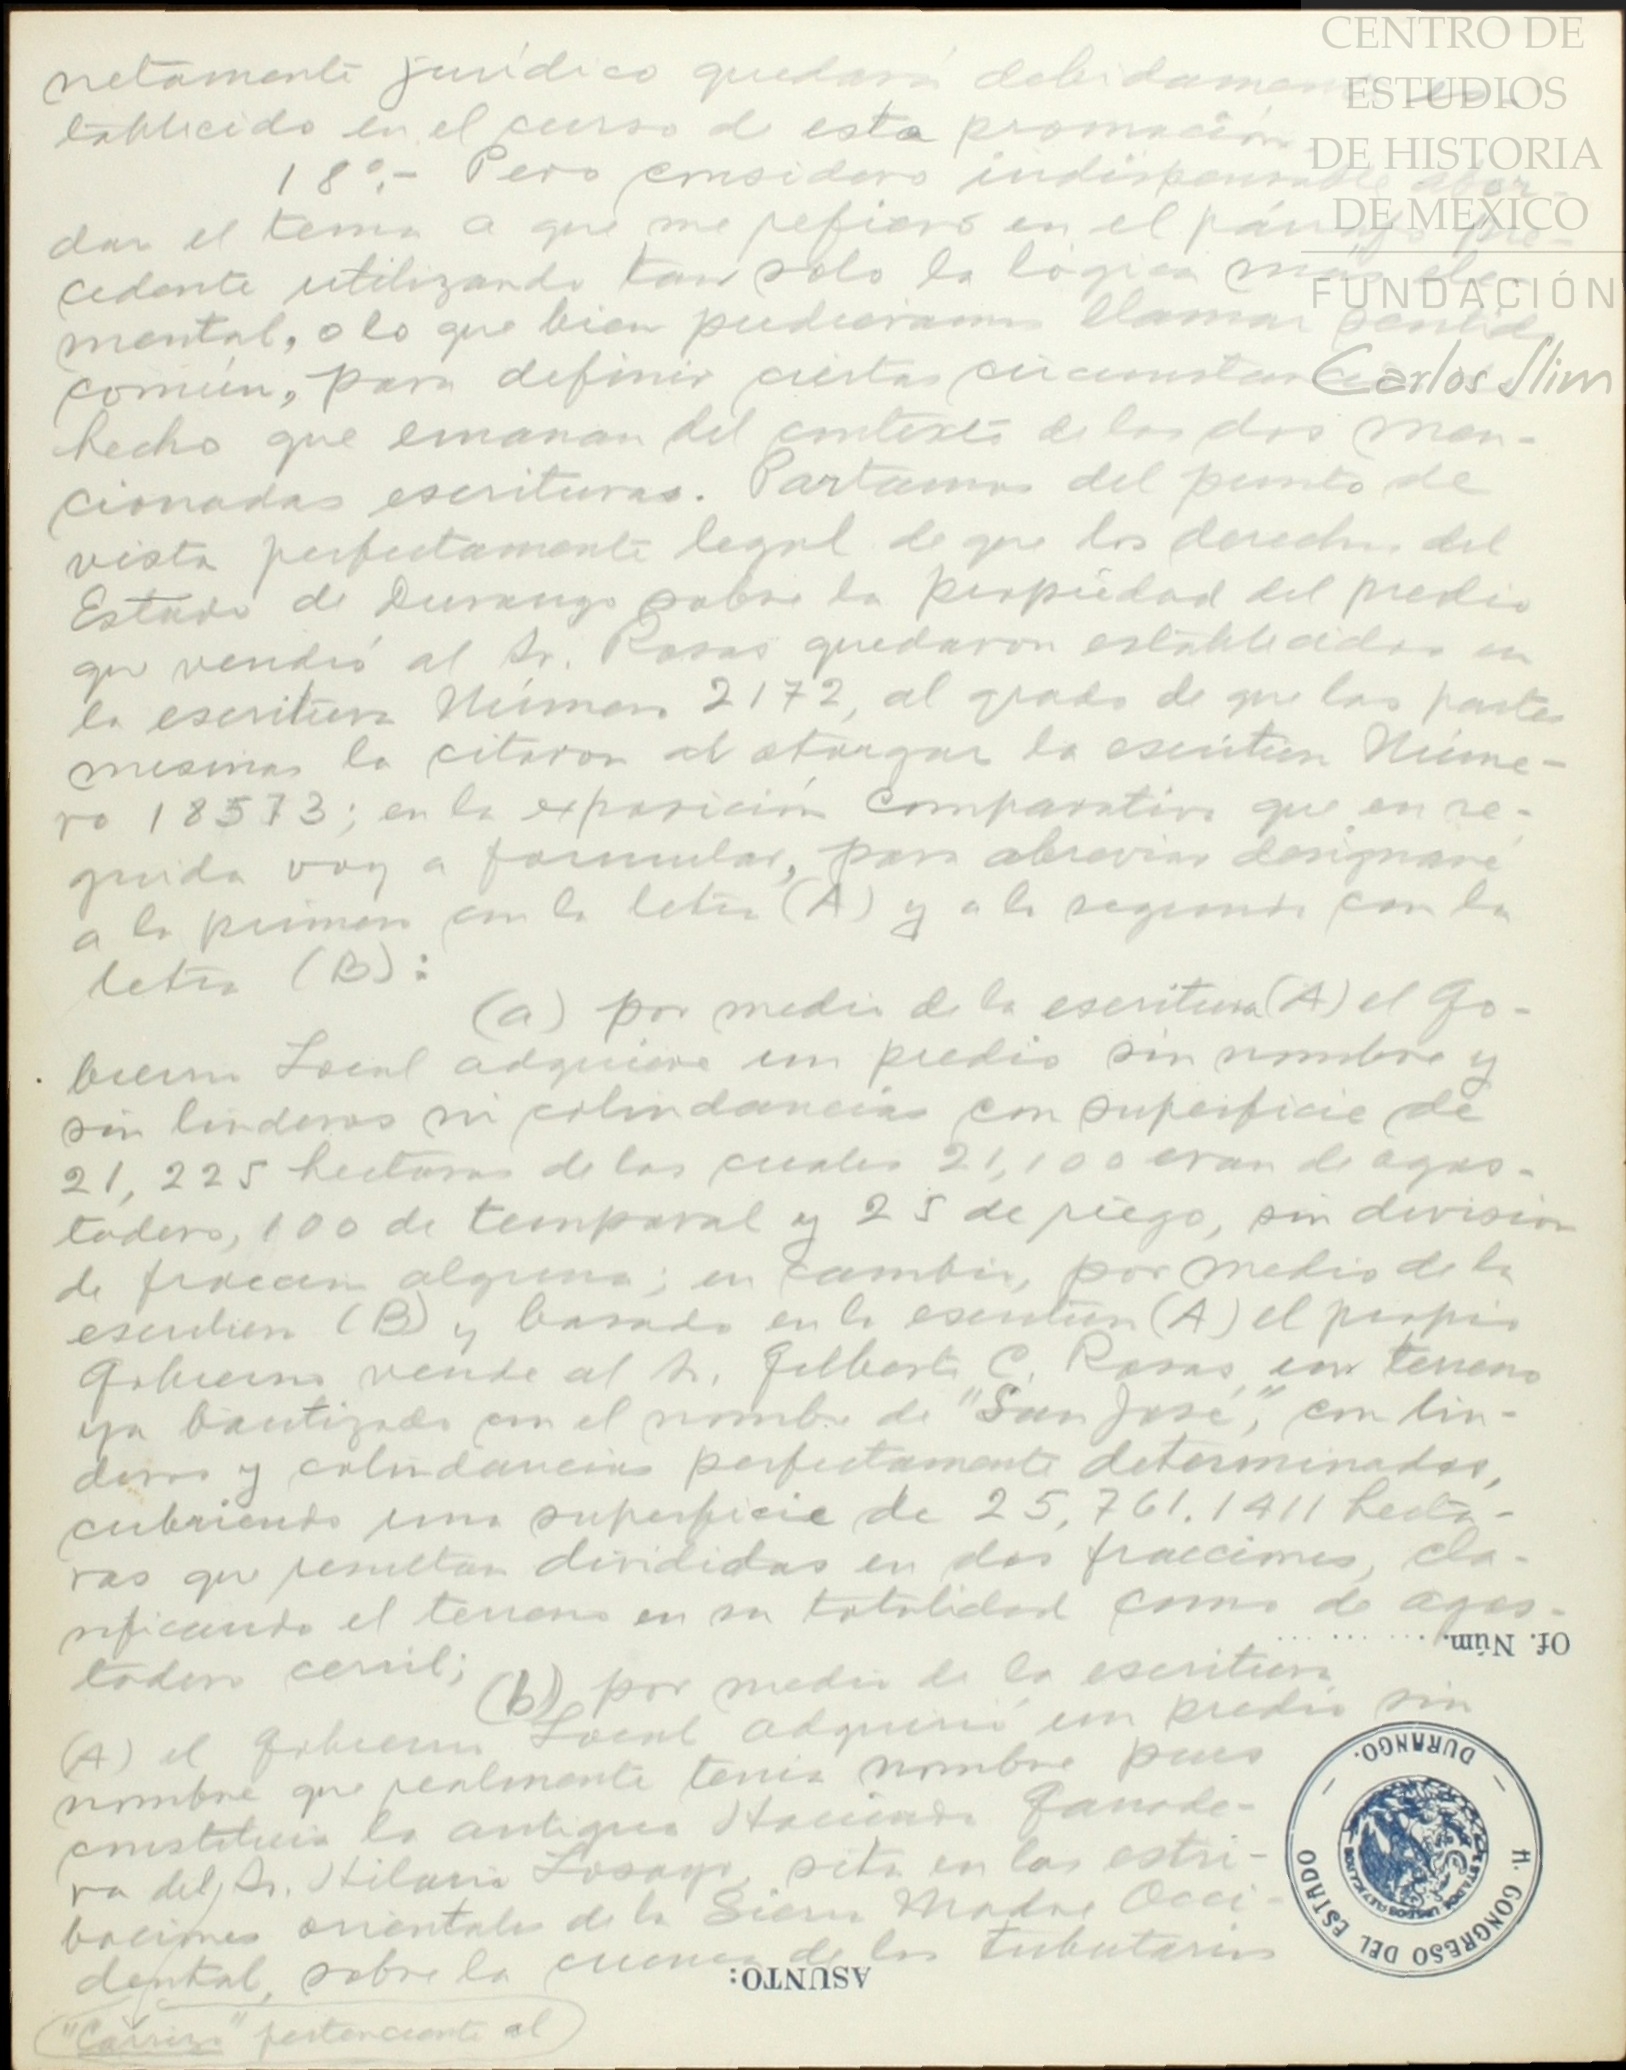 CENTRO DE
ESTUDIOS
DE HISTORIA
DE MEXICO
FUNDACIÓN
Carlos Slim
netamente jurídico quedará debidamente es-
tablecido en el curso de esta promoción.
18°.- Pero considero indispensable abor-
dar el tema a que me refiero en el párrafo pre-
cedente utilizando tan solo la lógica más ele-
mental, o lo que bien pudieramos llamar sentido
común, para definir ciertas circunstancias
hecho que emanan del contexto de las dos men-
cionadas escrituras. Partamos del punto de
vista perfectamente legal de que los derechos del
Estado de Durango sobre la propiedad del predio
que vendió al Sr. Rosas quedaron establecidos en
la escritura Número 2172, al grado de que las partes
mismas la citaron al otorgar la escritura Núme-
ro 18573; en la exposición comparativa que en se-
guida voy a formular, para abreviar designaré
a la primera con la letra (A) y a la segunda con la
letra (B):
(a) por medio de la escritura (A) el Go-
bierno Local adquiere un predio sin nombre y
sin linderos ni colindancias con superficie de
21,225 hectáreas de las cuales 21,100 eran de agos-
tadero, 100 de temporal y 25 de riego, sin división
de fracción alguna; en cambio, por medio de la
escritura (B) y basado en la escritura (A) el propio
Gobierno vende al Sr. Gilberto C. Rosas, un terreno
ya bautizado con el nombre de "San José", con lin-
deros y colindancias perfectamente determinados,
cubriendo una superficie de 25,761.1411 hectá-
ras que resultan divididas en dos fracciones, cla-
sificando el terreno en su totalidad como de agos-
tadero cerril;
(b) por medio de la escritura
(A) el Gobierno Local adquirió un predio sin
nombre que realmente tenía nombre pues
constituía la antigua Hacienda Ganade-
ra del Sr. Hilario Lozoya, sita en las estri-
baciones orientales de la Sierra Madre Occi-
dental, sobre la cuenca de los tributarios
"Carrizo" perteneciente al
Of. Núm. ..........
ASUNTO:
H. CONGRESO DEL ESTADO
DURANGO.
ESTADOS UNIDOS MEXICANOS